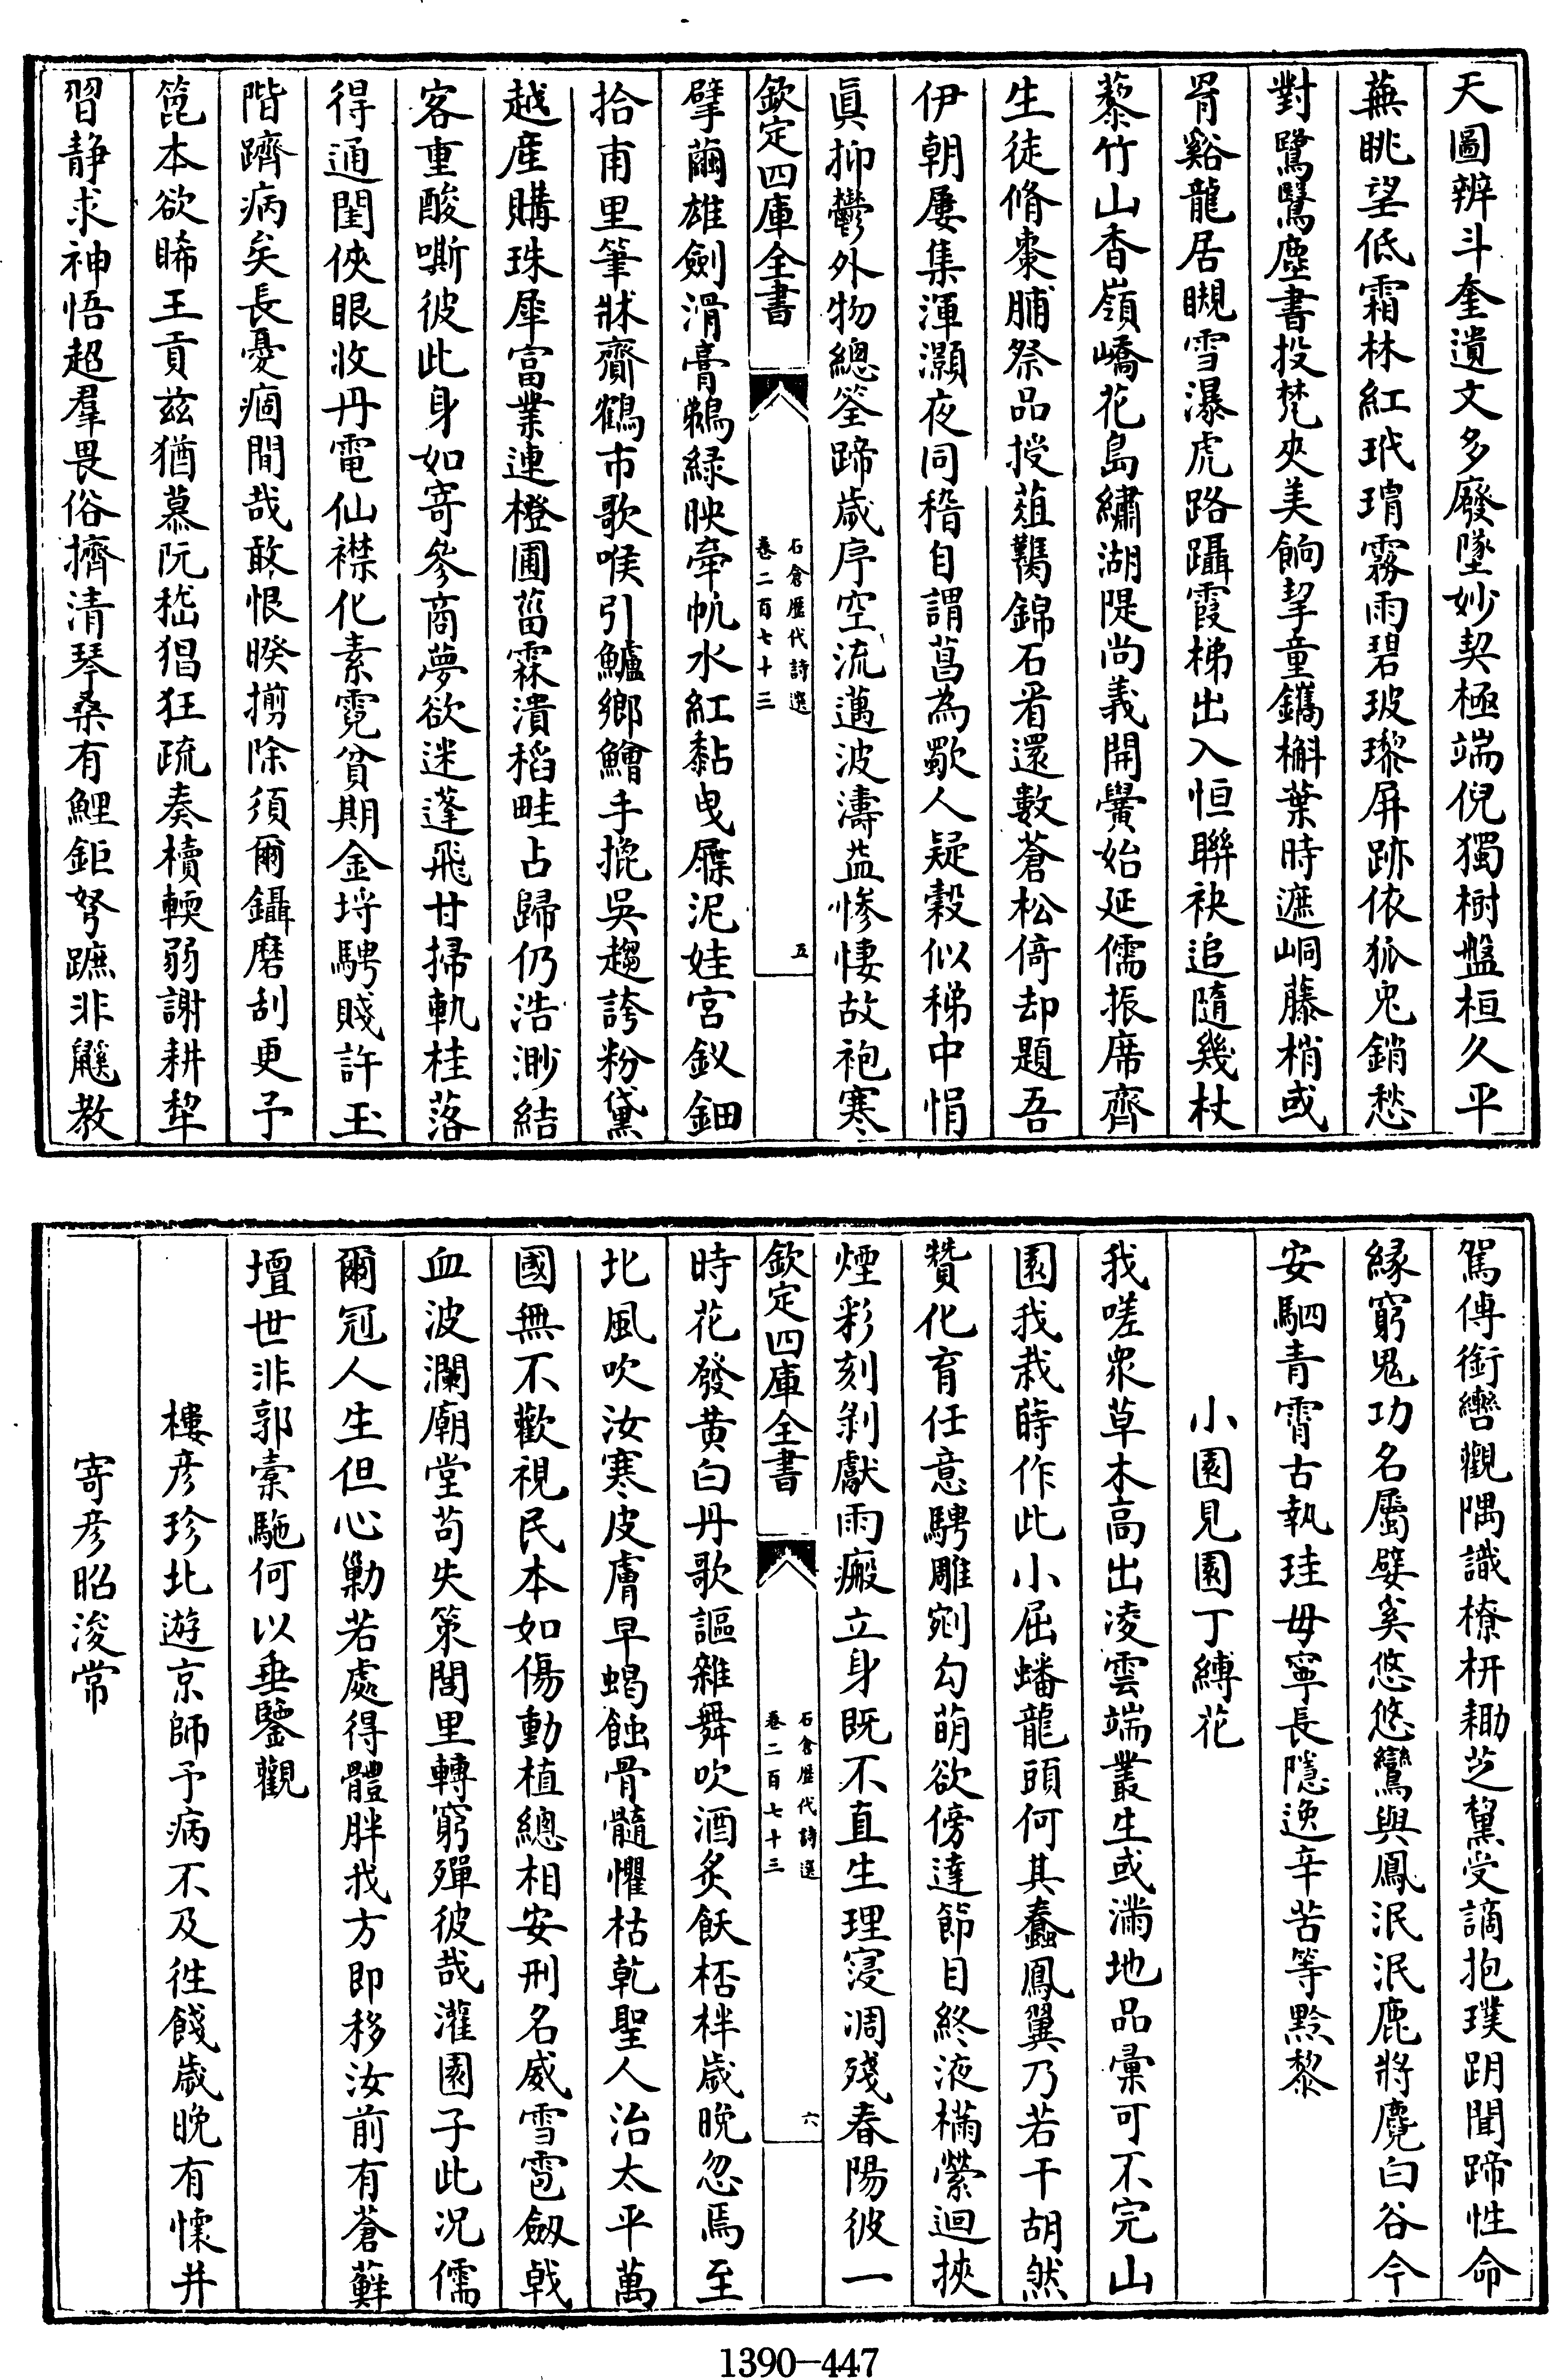 天圖辨斗奎遺文多廢墜妙契極端倪獨樹盤桓久平
蕪眺望低霜林紅玳瑁霧雨碧玻瓈屏跡依狐兎銷愁
對鷺鷖塵書投梵夾美餉挈童鑴槲葉時遮峒藤梢或
罥谿龍居瞡雪瀑虎路躡霞梯出入恒聯袂追隨幾杖
藜竹山香嶺嶠花島繡湖隄尚義開黌始延儒振席齊
生徒脩棗脯祭品授葅蠆錦石看還數蒼松倚却題吾
伊朝屢集渾灝夜同稽自謂菖為歜人疑穀似稊中悁
眞抑鬱外物總筌蹄歲序空流邁波濤益慘悽故袍寒
欽定四庫全書
石倉歷代詩選
卷二百七十三
五
擘繭雄劍滑膏鵜緑映牽帆水紅黏曳屧泥娃宮釵鈿
拾甫里筆牀齎鶴市歌喉引鱸鄉鱠手批吳趨誇粉黛
越産購珠犀富業連橙圃菑霖潰稻畦占歸仍浩渺結
客重酸嘶彼此身如寄參商夢欲迷蓬飛甘掃軌桂落
得通閨俠眼收丹電仙襟化素霓貧期金埒騁賤許玉
階躋病矣長憂痼閒哉敢恨暌搠除須爾鑷磨刮更予
箆本欲晞王貢兹猶慕阮嵇猖狂疏奏牘輭弱謝耕犂
習静求神悟超羣畏俗擠清琴桑有鯉鉅弩蹠非鼷教
駕傅銜轡觀隅識橑枅耡芝黧受謫抱璞跀聞蹄性命
緣窮鬼功名屬嬖奚悠悠鸞與鳳泯泯鹿將麑白谷今
安駟青霄古執珪毋寧長隱逸辛苦等黔黎
小園見園丁縛花
我嗟衆草木高出凌雲端叢生或滿地品彚可不完山
園我栽蒔作此小屈蟠龍頭何其蠢鳳翼乃若干胡然
贊化育任意騁雕剜勾萌欲傍達節目終液樠縈迴挾
煙彩刻剝獻雨瘢立身既不直生理寖凋殘春陽彼一
欽定四庫全書
石倉歷代詩選
卷二百七十三
六
時花發黄白丹歌謳雜舞吹酒炙飫桮柈歲晚忽焉至
北風吹汝寒皮膚早蝎蝕骨髓懼枯乾聖人治太平萬
國無不歡視民本如傷動植總相安刑名威雪雹劔戟
血波瀾廟堂苟失策閭里轉窮殫彼哉灌園子此况儒
爾冠人生但心勦若處得體胖我方即移汝前有蒼蘚
壇世非郭橐駞何以垂鑒觀
樓彦珍北遊京師予病不及徃餞歲晚有懷并
寄彦昭浚常
1390-447